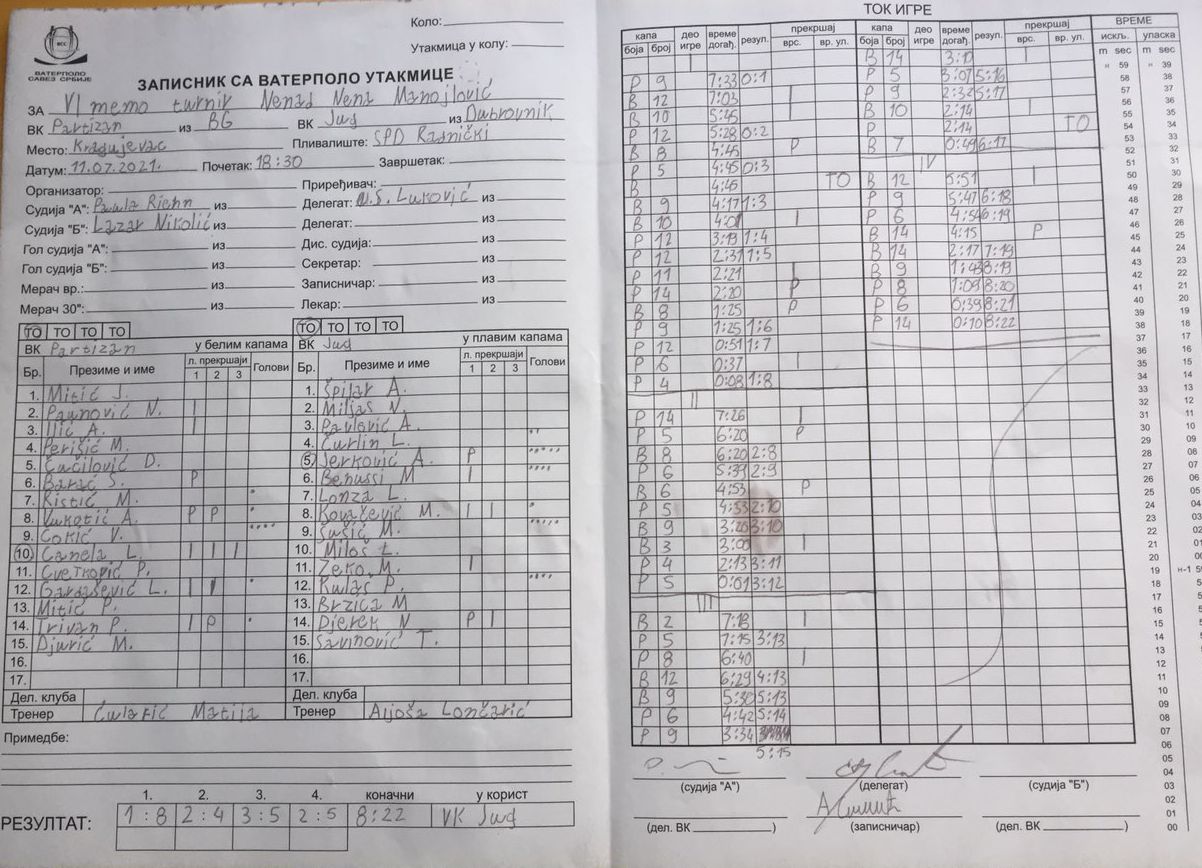 Коло:
Утакмица у колу:
ВСС
ВАТЕРПОЛО
САВЕЗ СРБИЈЕ
ЗАПИСНИК СА ВАТЕРПОЛО УТАКМИЦЕ
ЗА VI memo turnir Nenad Nena Manojlović
ВК Partizan из BG ВК Jug из Dubrovnik
Место: Kragujevac Пливалиште: SPD Radnički
Датум: 11.07.2021. Почетак: 18:30 Завршетак:
Организатор: Приређивач:
Судија "А": из Делегат: Luković из
Судија "Б": Lazar Nikolić из Делегат: из
Гол судија "А": из Дис. судија: из
Гол судија "Б": из Секретар: из
Мерач вр.: из Записничар: из
Мерач 30": из Лекар: из
ТО ТО ТО ТО
ВК Partizan у белим капама
Бр. Презиме и име л. прекршаји Голови
1 2 3
1. Mitić J.
2. Paunović N. I
3. Ilić A. I
4. Perišić M.
5. Čačilović D.
6. Barać S. P
7. Ristić M.
8. Vukotić A. P P
9. Čokić V.
10. Čanela L. I I I
11. Cvetković P.
12. Gardašević L. I I
13. Mitić P.
14. Trivan P. I P
15. Djurić M.
16.
17.
Дел. клуба
Тренер Ćulafić Matija
ТО ТО ТО ТО
ВК Jug у плавим капама
Бр. Презиме и име л. прекршаји Голови
1 2 3
1. Špilar A.
2. Miljas N.
3. Pavlović A.
4. Čurlin L.
5. Jerković A. P
6. Benussi M I
7. Lonza L.
8. Kovačević M. I I
9. Šušić M.
10. Miloš L.
11. Zeko M. I
12. Kulaš P.
13. Brzica M
14. Djerek N P I
15. Savinović T.
16.
17.
Дел. клуба
Тренер Aljoša Lončarić
Примедбе:
1. 2. 3. 4. коначни у корист
РЕЗУЛТАТ: 1:8 2:4 3:5 2:5 8:22 VK Jug
ТОК ИГРЕ
капа део игре време догађ. резул. прекршај
боја број врс. вр. ул.
I
P 9 7:33 0:1
B 12 7:03 I
B 10 5:45 I
P 12 5:28 0:2
B 8 4:45 P
P 5 4:45 0:3
B 4:45 TO
B 9 4:17 1:3
B 10 4:01 I
P 12 3:19 1:4
P 12 2:31 1:5
P 11 2:21 I
P 14 2:20 P
B 8 1:25 P
P 9 1:25 1:6
P 12 0:51 1:7
P 6 0:37 I
P 4 0:08 1:8
II
P 14 7:26 I
P 5 6:20 P
B 8 6:20 2:8
P 6 5:39 2:9
B 6 4:53 P
P 5 4:53 2:10
B 9 3:20 3:10
B 3 3:00 I
P 4 2:13 3:11
P 5 0:01 3:12
III
B 2 7:18 I
P 5 7:15 3:13
P 8 6:40 I
B 12 6:29 4:13
B 9 5:30 5:13
P 6 4:42 5:14
P 9 3:34
5:15
капа део игре време догађ. резул. прекршај
боја број врс. вр. ул.
B 14 3:10 I
P 5 3:07 5:16
P 9 2:32 5:17
B 10 2:14 I
P 2:14 TO
B 7 0:49 6:17
IV
B 12 5:51 I
P 9 5:47 6:18
P 6 4:54 6:19
B 14 4:15 P
B 14 2:17 7:19
B 9 1:43 8:19
P 8 1:09 8:20
P 6 0:39 8:21
P 14 0:10 8:22
ВРЕМЕ
искљ. уласка
m sec m sec
н 59 н 39
58 38
57 37
56 36
55 35
54 34
53 33
52 32
51 31
50 30
49 29
48 28
47 27
46 26
45 25
44 24
43 23
42 22
41 21
40 20
39 19
38 18
37 17
36 16
35 15
34 14
33 13
32 12
31 11
30 10
29 09
28 08
27 07
26 06
25 05
24 04
23 03
22 02
21 01
20 00
19 н-1
18
17
16
15
14
13
12
11
10
09
08
07
06
05
04
03
02
01
00
(судија "А") (делегат) (судија "Б")
(дел. ВК ) (записничар) (дел. ВК )